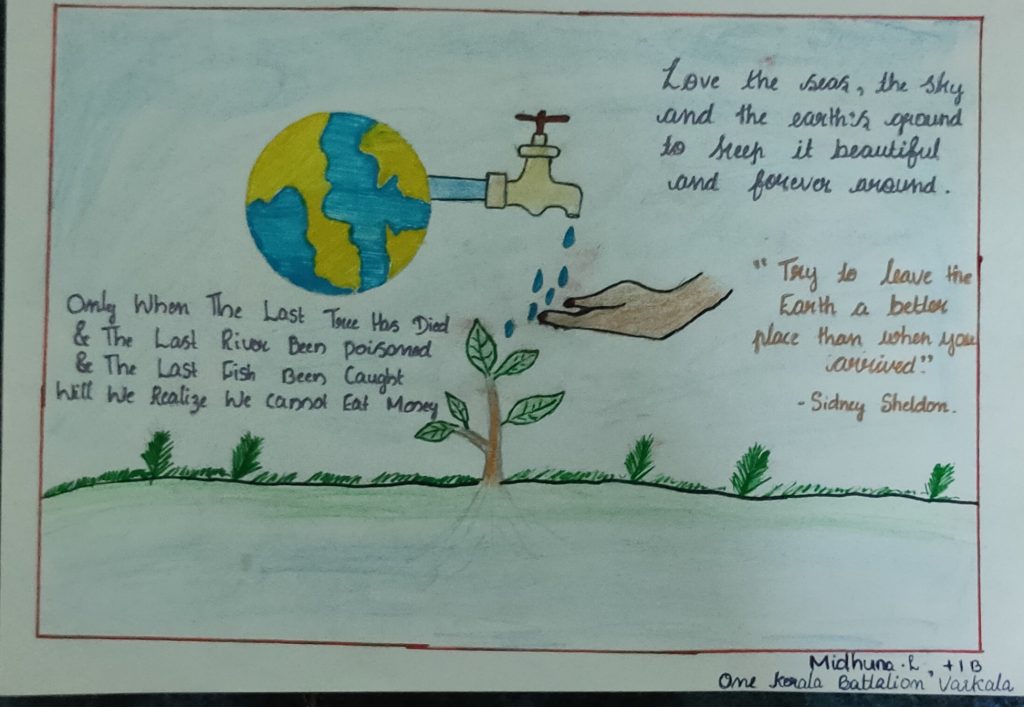 Love the seas, the sky
and the earth's ground
to keep it beautiful
and forever around.
"Try to leave the
Earth a better
place than when you
arrived."
- Sidney Sheldon.
Only When The Last Tree Has Died
& The Last River Been poisoned
& The Last Fish Been Caught
Will We Realize We cannot Eat Money
Midhuna. L, +1 B
One Kerala Battalion Varkala